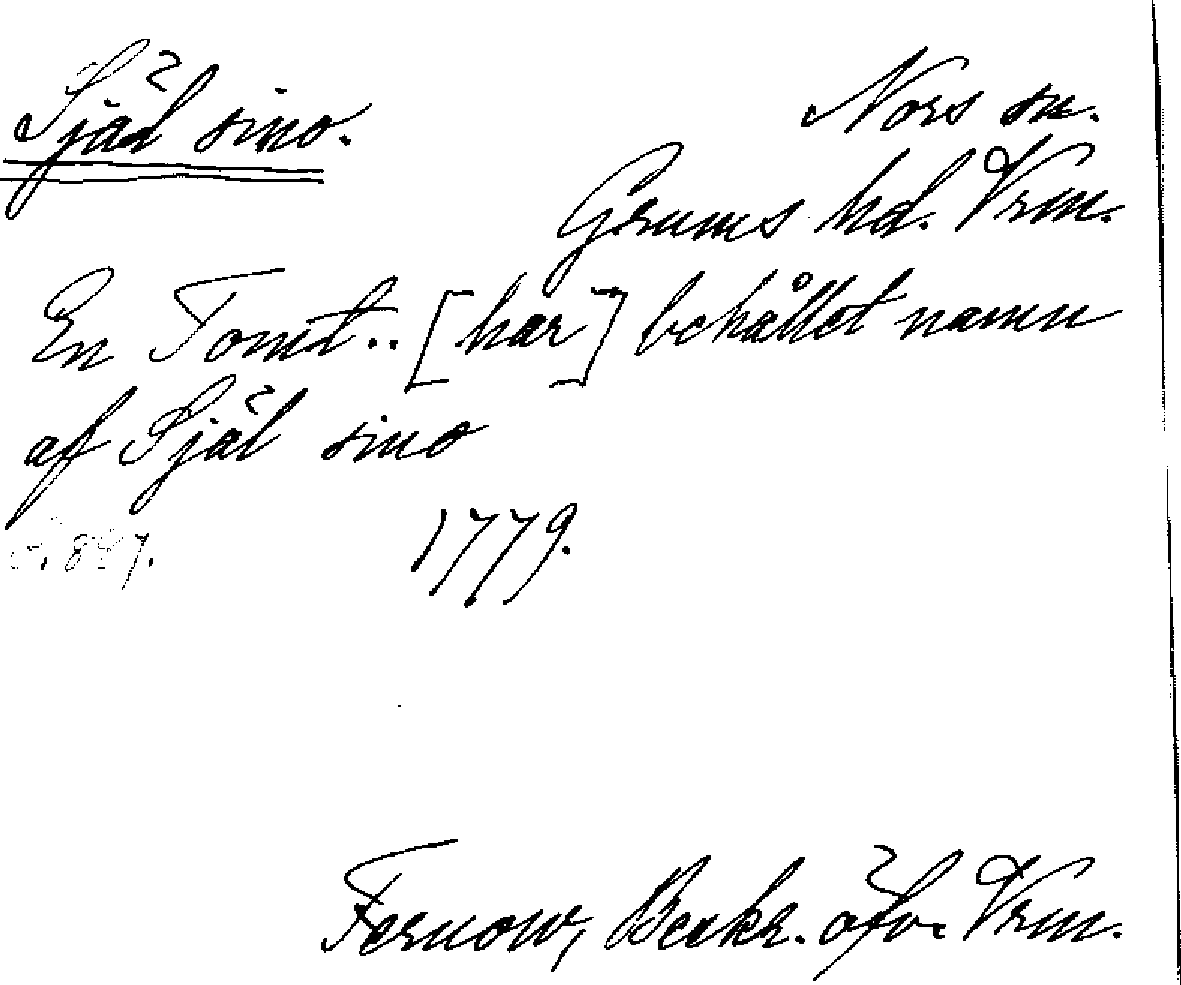 Själ sino.
Nors sn.
Grums hd. Vrm.
En Tomt.. [har] behållet namn
af Själ sino
1779.
Fernow, Beskr. öfv. Vrm.